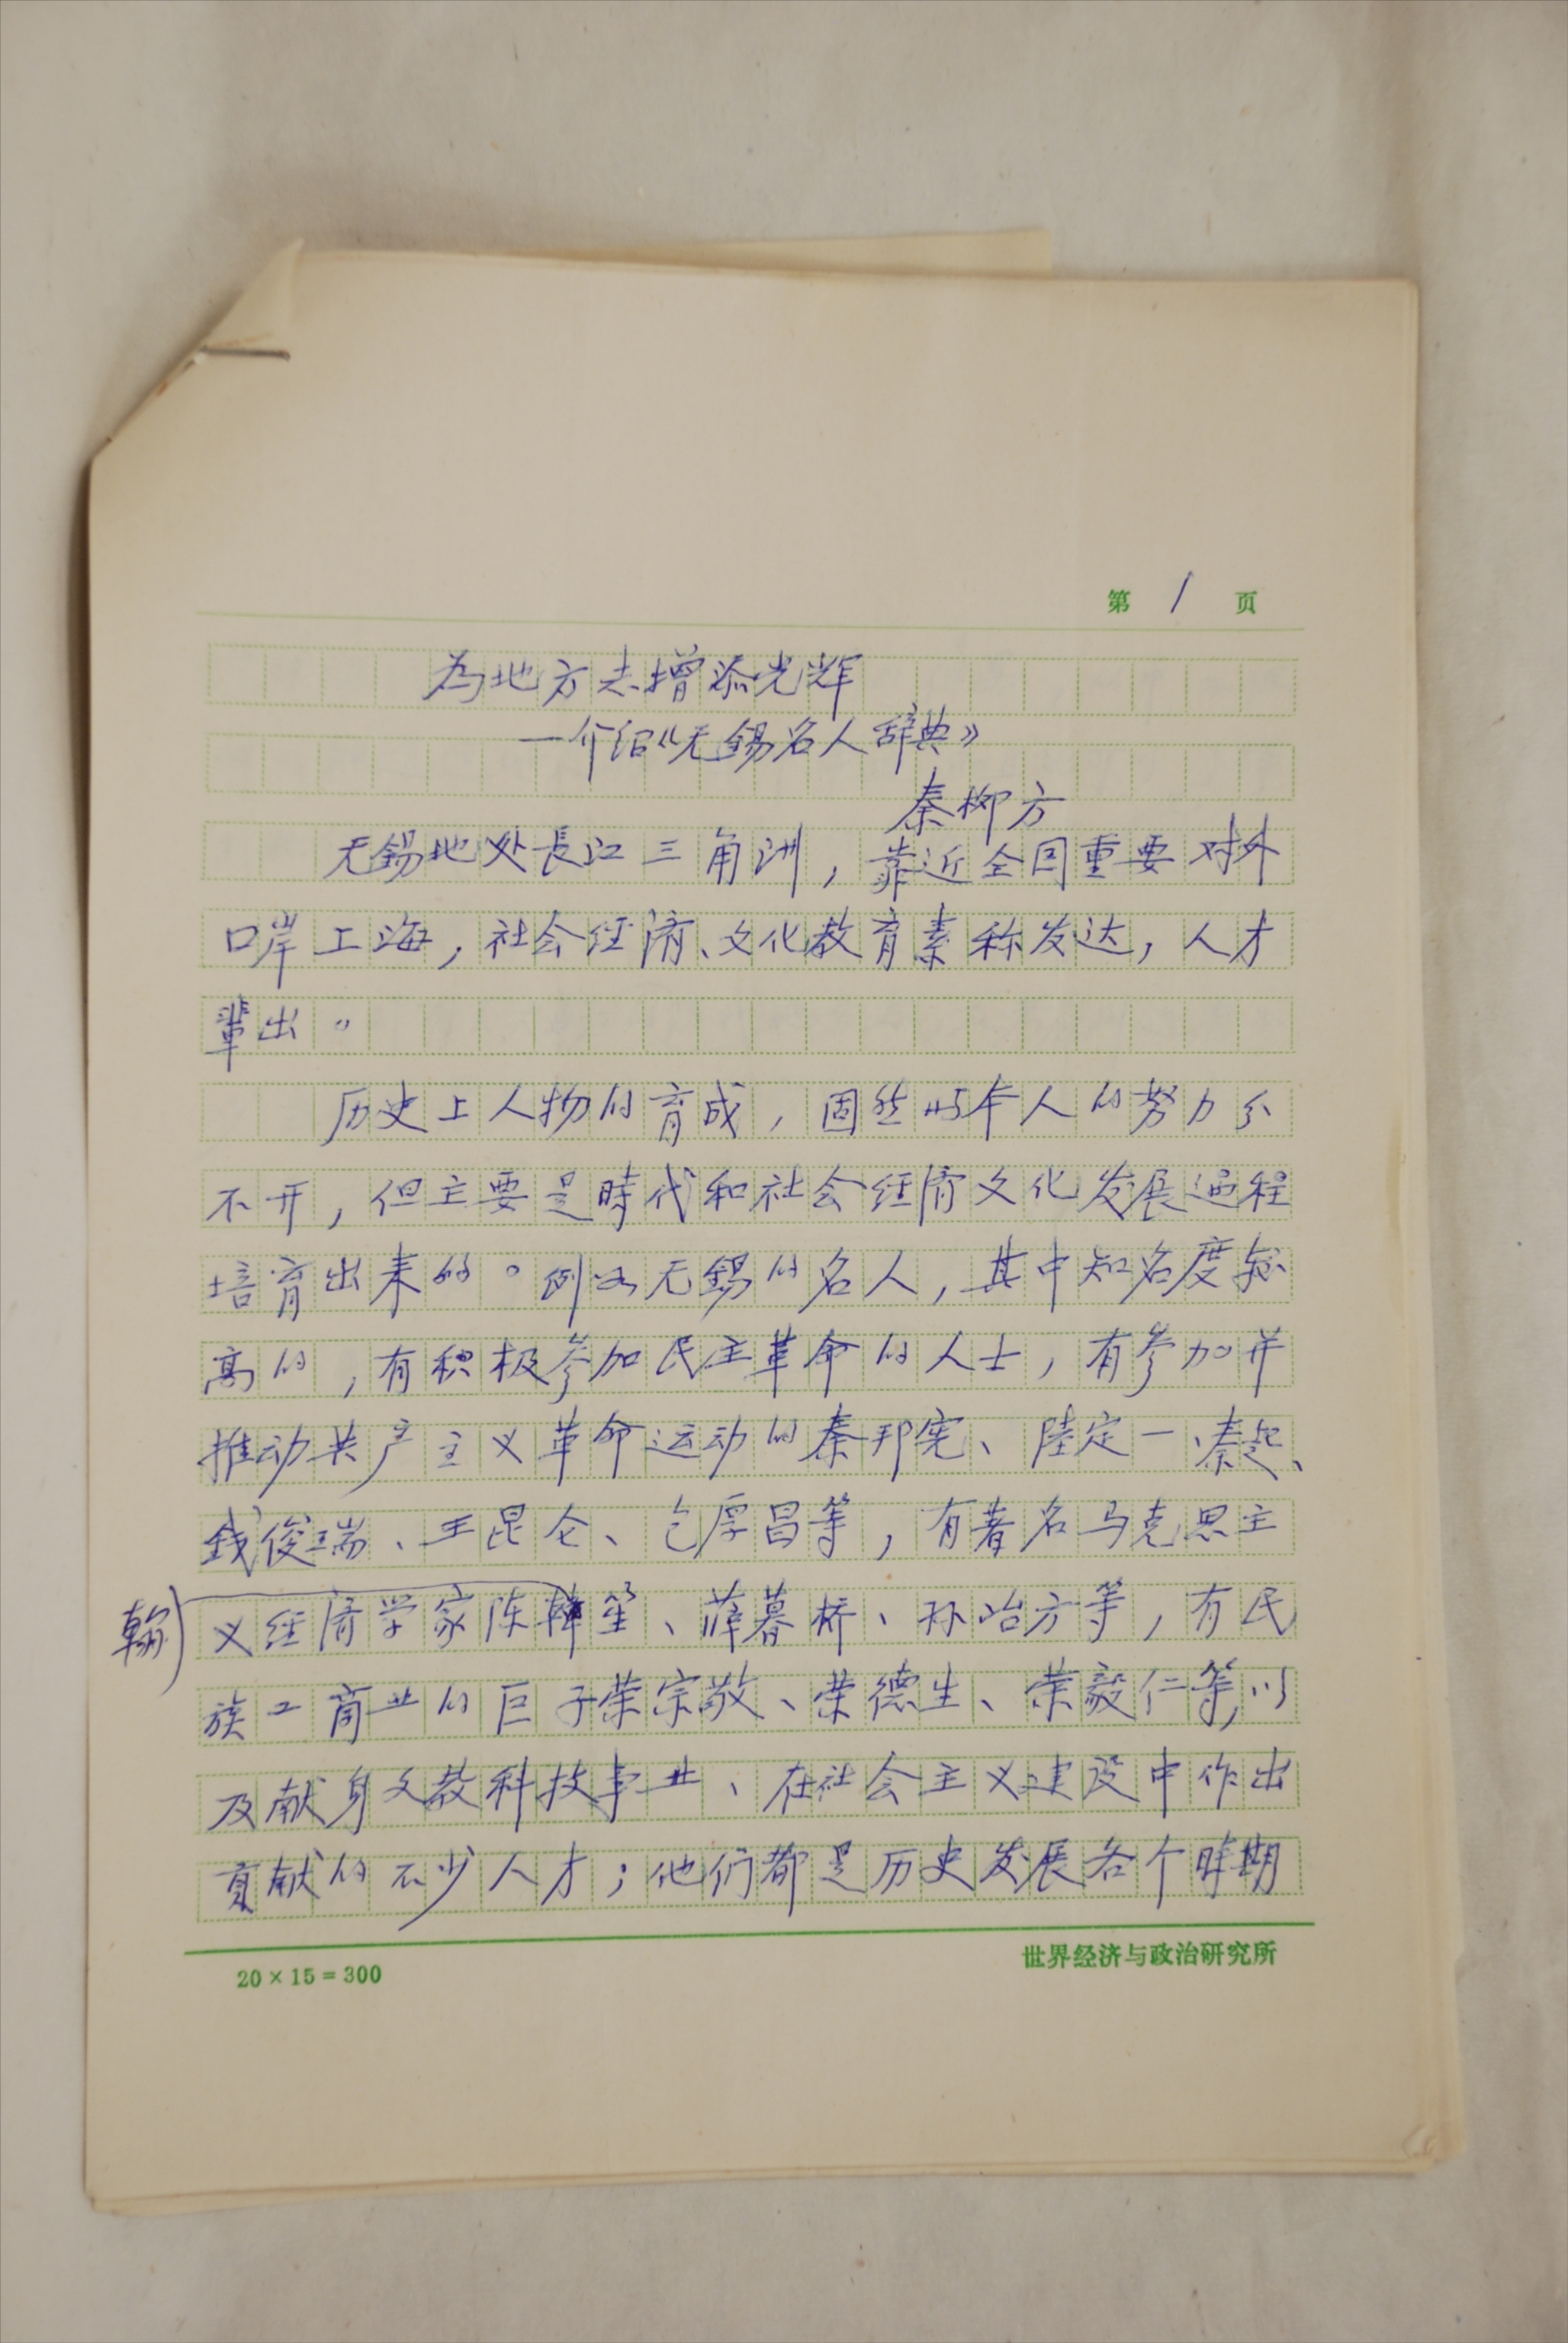 第 1 页
为地方志增添光辉
—介绍《无锡名人辞典》
秦柳方
无锡地处長江三角洲，靠近全国重要对外
口岸上海，社会经济、文化教育素称发达，人才
辈出。
历史上人物的育成，固然与本人的努力分
不开，但主要是時代和社会经济文化发展过程
培育出来的。例如无锡的名人，其中知名度较
高的，有积极参加民主革命的人士，有参加并
推动共产主义革命运动的秦邦宪、陸定一、秦起、
錢俊瑞、王昆仑、包厚昌等，有著名马克思主
翰
义经济学家陈翰笙、薛暮桥、孙冶方等，有民
族工商业的巨子荣宗敬、荣德生、荣毅仁等，以
及献身文教科技事业、在社会主义建设中作出
貢献的不少人才；他们都是历史发展各个時期
20×15=300
世界经济与政治研究所